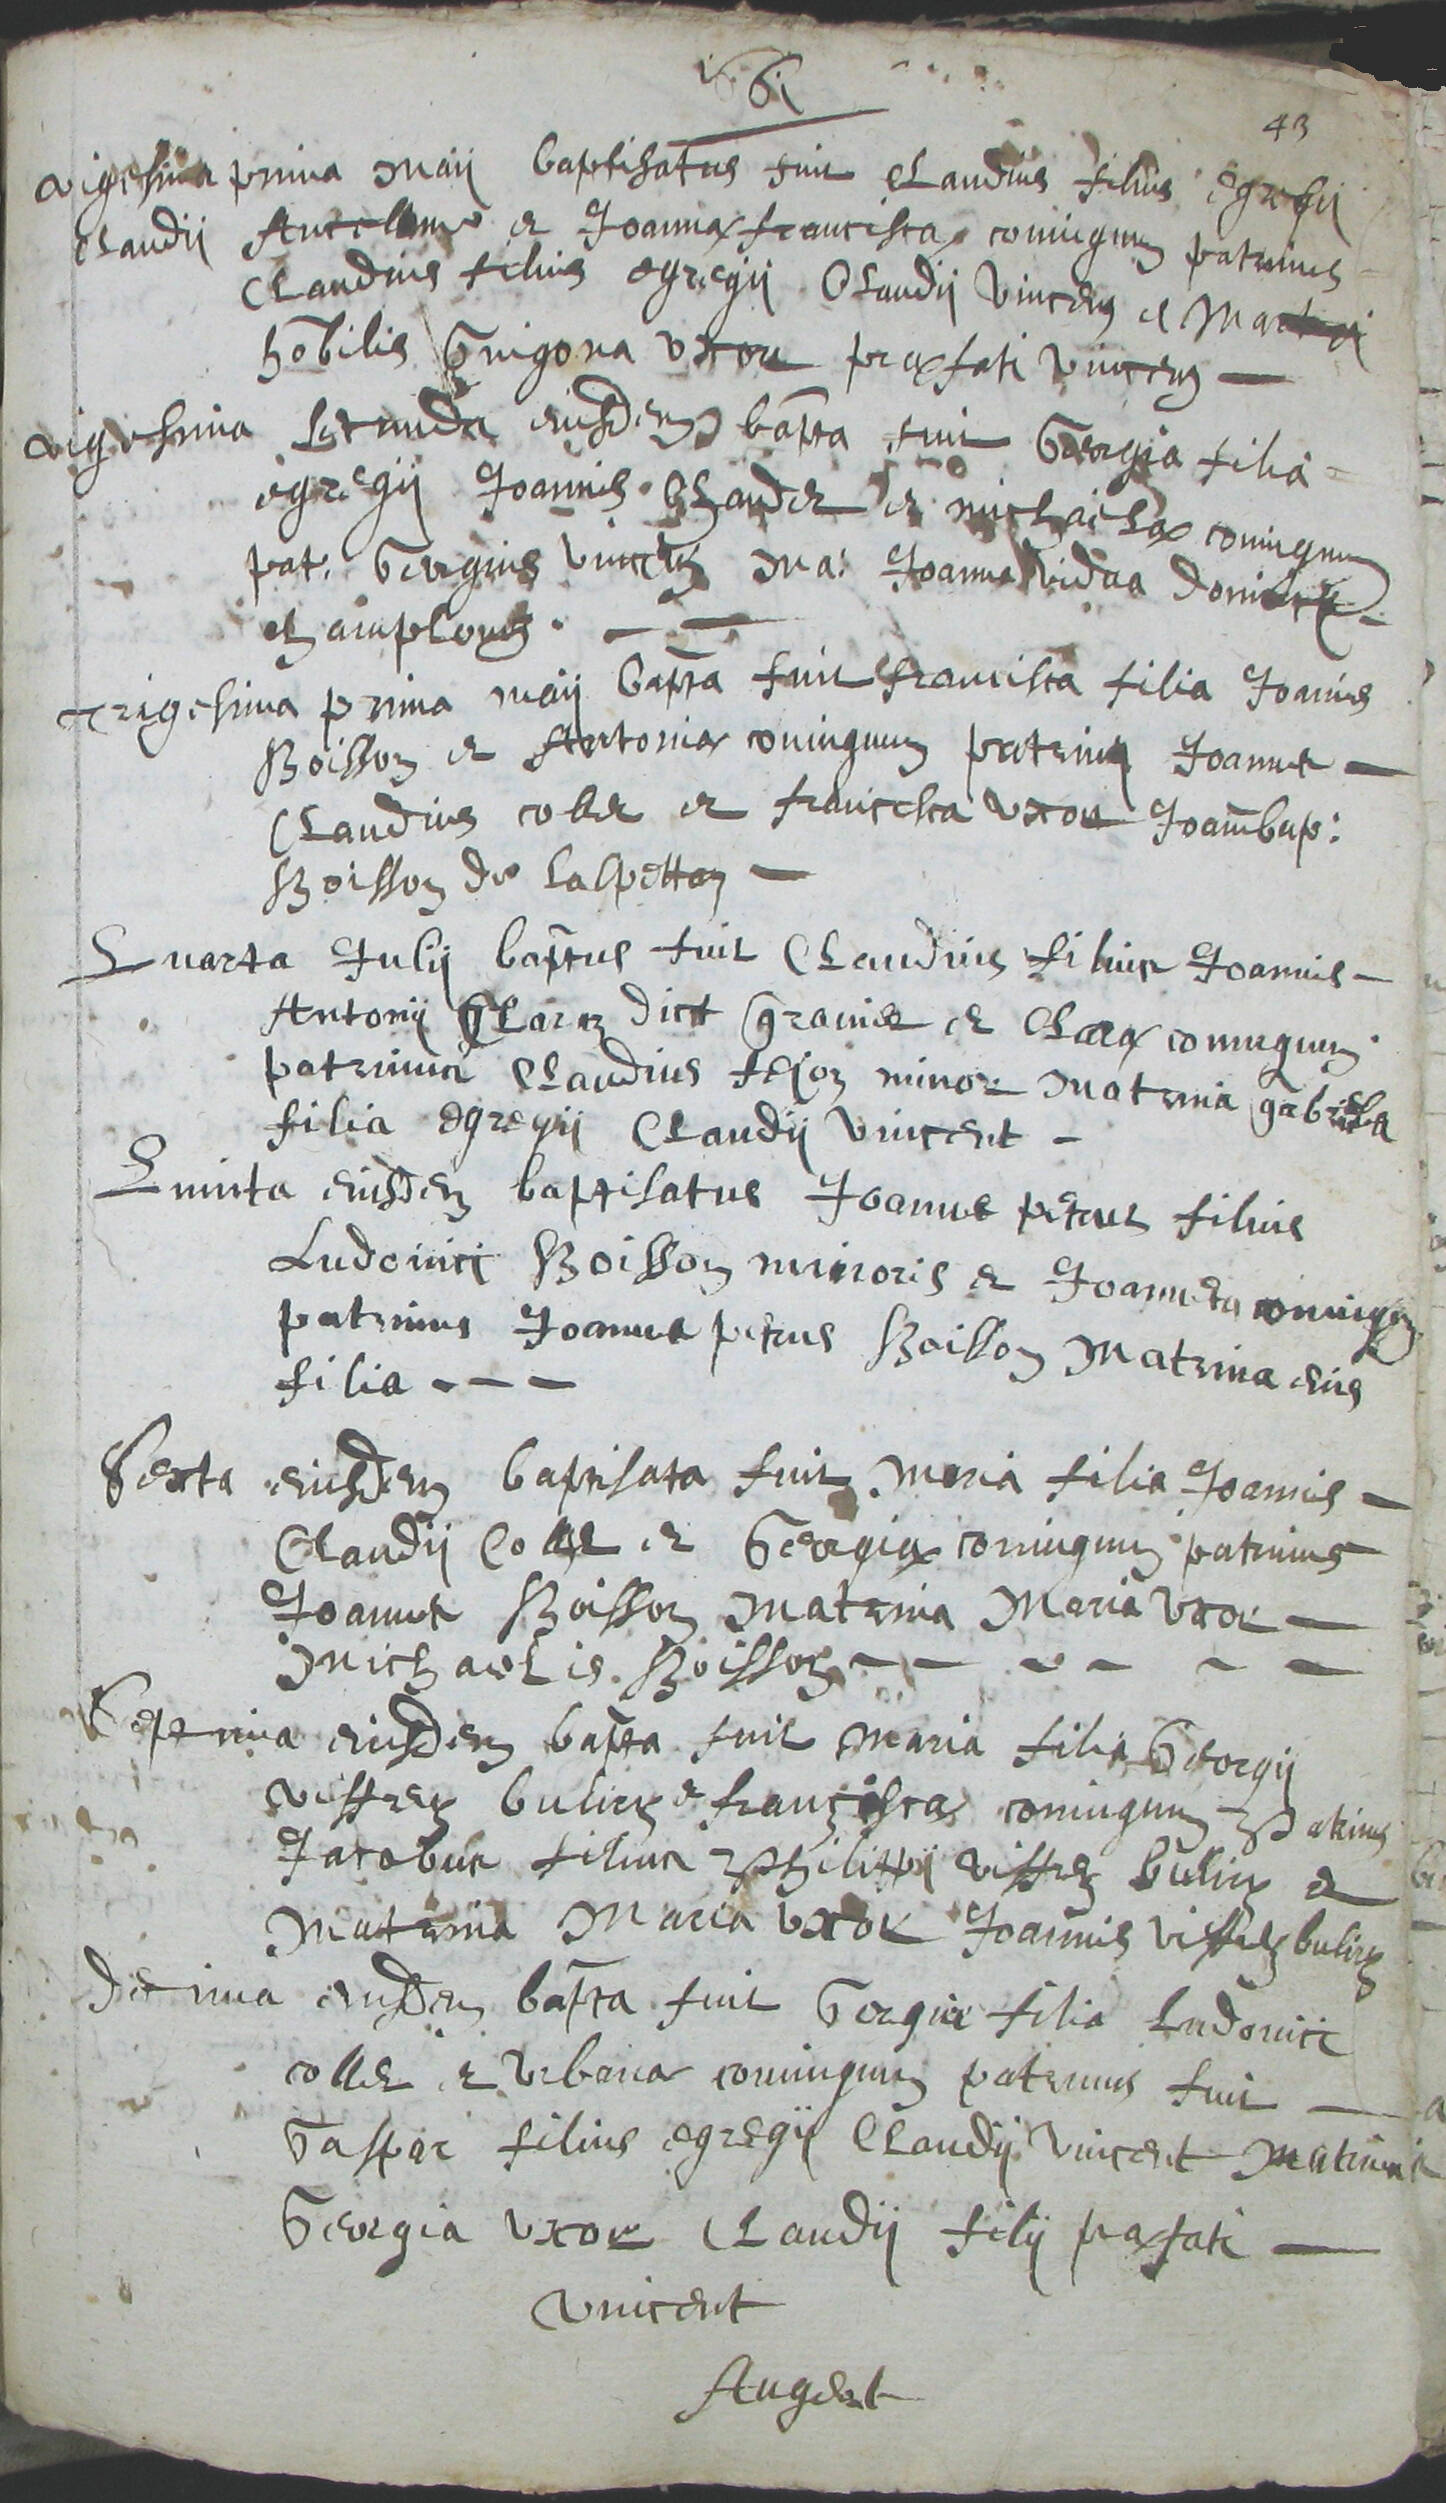 43
vigesima prima maij baptisatus fuit Claudius filius egregij
Claudij et Joannæ franciscæ coniugum patrinus
Claudius filius egregij Claudij Vincent et
nobilis uxor præfati Vincent
vigesima secunda eiusdem bapta fuit Georgia filia
egregij Joannis et michaelæ coniugum
pat. Georgius Vincent Ma: Joanna vidua

trigesima prima maij bapta fuit francisca filia Joannis
Boisson et Antoniæ coniugum patrinus Joannes
Claudius collet et francesca uxor Joannbap:
Boisson de
Quarta Julij baptus fuit Claudius filius Joannis
Antonij et Claræ coniugum
patrinus Claudius minor matrina gabriela
filia egregij Claudij Vincent
Quinta eiusdem baptisatus Joannes petrus filius
Ludovici Boisson minoris et Joannetæ
patrinus Joannes petrus Boisson Matrina eius
filia
Sexta eiusdem baptisata fuit Maria filia Joannis
Claudij Collet et Georgiæ coniugum patrinus
Joannes Boisson Matrina Maria uxor
Michaelis Boisson
Septima eiusdem bapta fuit Maria filia Georgij
et franciscæ coniugum Patrinus
Jacobus filius Philippi et
Matrina Maria uxor Joannis
decima eiusdem bapta fuit Georgia filia Ludovici
collet et Urbanæ coniugum patrinus fuit
Gaspar filius egregij Claudij Vincent Matrina
Georgia uxor Claudij filij præfati
Vincent